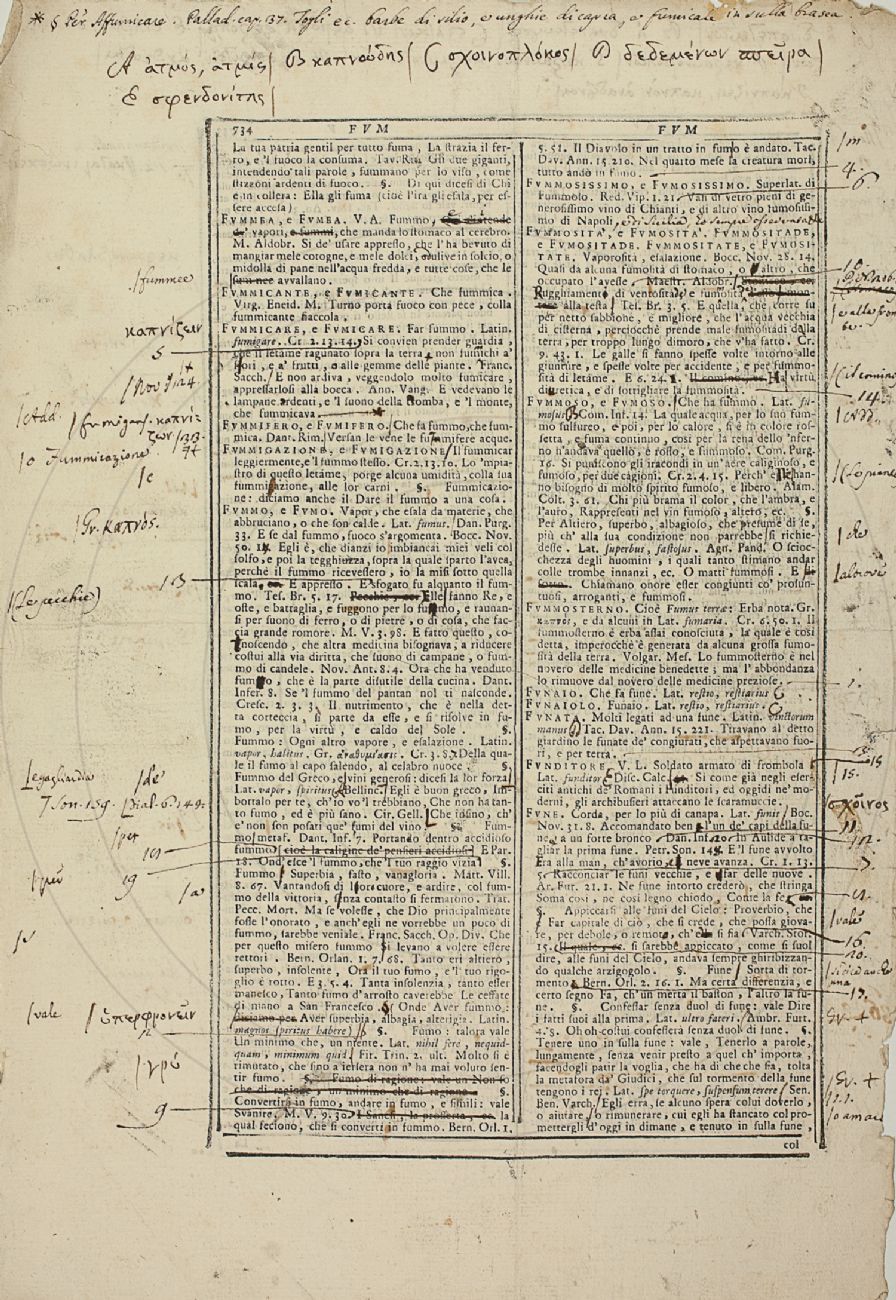 * § Per Affumicare. Pallad. cap. 37. Togli ec. barbe di silio, e unghie di capra, e fumicale in sulla brascia.
A ἀτμός, ἀτμίς| B καπνώδης| C σχοινοπλόκος| D δεδεμένων σπεῖρα|
E σφενδονίτης|
734 FVM
La tua patria gentil per tutto fuma, La strazia il ferro,
e 'l fuoco la consuma. Tav. Rit. Gli due giganti,
intendendo tali parole, fummano per lo viso, come
stizzoni ardenti di fuoco. §. Di qui dicesi di Chi
è in collera: Ella gli fuma (cioè l'ira gli esala, per essere
accesa)
FVMMEA, e FVMEA. V. A. Fummo,
de' vapori, e fummi, che manda lo stomaco al cerebro.
M. Aldobr. Si de' usare appresso, che l'ha bevuto di
mangiar mele cotogne, e mele dolci, o ulive in solcio, o
midolla di pane nell'acqua fredda, e tutte cose, che le
avvallano.
FVMMICANTE, e FVMICANTE. Che fummica.
Virg. Eneid. M. Turno porta fuoco con pece, colla
fummicante fiaccola.
FVMMICARE, e FVMICARE. Far fummo. Latin.
fumigare. Cr. 2. 13. 14. Si convien prender guardia,
che il letame ragunato sopra la terra, non fummichi a'
fiori, e a' frutti, o alle gemme delle piante. Franc.
Sacch. E non ardiva, veggendolo molto fumicare,
appressarlosi alla bocca. Ann. Vang. E vedevano le
lampane ardenti, e 'l suono della tromba, e 'l monte,
che fummicava
FVMMIFERO, e FVMIFERO. Che fa fummo, che fummica.
Dant. Rim. Versan le vene le fummifere acque.
FVMMIGAZIONE, e FVMIGAZIONE. Il fummicar
leggiermente, e 'l fummo stesso. Cr. 2. 13. 10. Lo 'mpiastro
di questo letame, porge alcuna umidità, colla sua
fummigazione, alle lor carni. §. Fummicazione:
diciamo anche il Dare il fummo a una cosa.
FVMMO, e FVMO. Vapor, che esala da materie, che
abbruciano, o che son calde. Lat. fumus. Dan. Purg.
33. E se dal fummo, fuoco s'argomenta. Bocc. Nov.
50. Egli è, che dianzi io imbiancai miei veli col
solfo, e poi la tegghiuzza, sopra la quale sparto l'avea,
perchè il fummo ricevessero, io la misi sotto quella
scala, E appresso. E sfogato fu alquanto il fummo.
Tes. Br. 5. 17. Elle fanno Re, e
oste, e battaglia, e fuggono per lo fummo, e raunansi
per suono di ferro, o di pietre, o di cosa, che faccia
grande romore. M. V. 3. 98. E fatto questo, conoscendo,
che altra medicina bisognava, a riducere
costui alla via diritta, che suono di campane, o fummo
di candele. Nov. Ant. 8. 4. Ora che ha venduto
fummo, che è la parte disutile della cucina. Dant.
Infer. 8. Se 'l fummo del pantan nol ti nasconde.
Cresc. 2. 3. 3. Il nutrimento, che è nella detta
corteccia, si parte da esse, e si risolve in fumo,
per la virtù, e caldo del Sole. §.
Fummo: Ogni altro vapore, e esalazione. Latin.
vapor, halitus. Gr. ἀναθυμίασις. Cr. 3. 8. 7. Della quale
il fumo al capo salendo, al celabro nuoce. §.
Fummo del Greco, e vini generosi: dicesi la lor forza
Lat. vapor, spiritus. Bellinc. Egli è buon greco, Imbottalo
per te, ch'io vo'l trebbiano, Che non ha tanto
fumo, ed è più sano. Cir. Gell. Che issino, ch'
e' non son posati que' fumi del vino. §. Fummo
metaf. Dant. Inf. 7. Portando dentro accidioso
fummo cioè la caligine de' pensieri accidiosi E Par.
18. Ond' esce 'l fummo, che 'l tuo raggio vizia §.
Fummo Superbia, fasto, vanagloria. Matt. Vill.
8. 67. Vantandosi di lor cuore, e ardire, col fummo
della vittoria, senza contasto si fermarono. Trat.
Pecc. Mort. Ma se volesse, che Dio principalmente
fosse l'onorato, e anch'egli ne vorrebbe un poco di
fummo, sarebbe veniale. Franc. Sacch. Op. Div. Che
per questo misero fummo si levano a volere essere
rettori. Bern. Orlan. 1. 7. 68. Tanto eri altiero,
superbo, insolente, Ora il tuo fumo, e 'l tuo rigoglio
è rotto. E 3. 5. 4. Tanta insolenzia, tanto esser
manesco, Tanto fumo d'arrosto caverebbe Le ceffate
di mano a San Francesco. § Onde Aver fummo:
Diciamo per Aver superbia, albagia, alterigia. Latin.
magnos spiritus habere §. Fumo: talora vale
Un minimo che, un niente. Lat. nihil fere, nequidquam,
minimum quid. Fir. Trin. 2. ult. Molto si è
rimutato, che fino a iersera non n' ha mai voluto sentir
fumo. §. Fumo di ragione: vale un Non so
che di ragione, un minimo che di ragione §.
Convertirsi in fumo, andare in fumo, e simili: vale
Svanire. M. V. 9. 30. la
qual feciono, che si convertì in fummo. Bern. Orl. 1.
FVM
5. 51. Il Diavolo in un tratto in fumo è andato. Tac.
Dav. Ann. 15. 210. Nel quarto mese la creatura morì,
tutto andò in fumo.
FVMMOSISSIMO, e FVMOSISSIMO. Superlat. di
Fummoso. Red. Vip. 1. 21. Van di vetro pieni di generosissimo
vino di Chianti, e di altro vino fumosissimo
di Napoli,
FVMMOSITA', e FVMOSITA'. FVMMOSITADE,
e FVMOSITADE. FVMMOSITATE, e FVMOSITATE.
Vaporosità, esalazione. Bocc. Nov. 28. 14.
Quasi da alcuna fumosità di stomaco, o d'altro, che
occupato l'avesse. Maestr. Aldobr.
Rugghiamento di ventosità e fumosità
alla testa Tes. Br. 3. 5. E quella, che corre su
per netto sabbione, è migliore, che l'acqua vecchia
di cisterna, perciocchè prende male fumositadi della
terra, per troppo lungo dimoro, che v'ha fatto. Cr.
9. 43. 1. Le galle si fanno spesse volte intorno alle
giunture, e spesse volte per accidente, e per fummosità
di letame. E 6. 24. 1. Il comino, ec. Ha virtù
diuretica, e di sottigliare la fummosità.
FVMMOSO, e FVMOSO. Che ha fummo. Lat. fumosus
Com. Inf. 14. La quale acqua, per lo suo fummo
sulfureo, e poi, per lo calore, si è in colore rossetta,
e fuma continuo, così per la rena dello 'nferno
n'andava quello, e rosso, e fummoso. Com. Purg.
16. Si puniscono gli iracondi in un'aere caliginoso, e
fumoso, per due cagioni. Cr. 2. 4. 15. Perch'
no bisogno di molto spirito fumoso, e libero. Alam.
Colt. 3. 61. Chi più brama il color, che l'ambra, e
l'auro, Rappresenti nel vin fumoso, altero, ec. §.
Per Altiero, superbo, albagioso, che presume di se,
più ch' alla sua condizione non parrebbe si richiedesse.
Lat. superbus, fastosus. Agn. Pand. O sciocchezza
degli huomini, i quali tanto stimano andar
colle trombe innanzi, ec. O matti fummosi. E
Chiamano onore esser congiunti co' prosuntuosi,
arroganti, e fummosi.
FVMMOSTERNO. Cioè Fumus terrae: Erba nota. Gr.
καπνός, e da alcuni in Lat. fumaria. Cr. 6. 50. 1. Il
fummosterno è erba assai conosciuta, la quale è così
detta, imperocchè è generata da alcuna grossa fumosità
della terra. Volgar. Mes. Lo fummosterno è nel
novero delle medicine benedette; ma l'abbondanza
lo rimuove dal novero delle medicine preziose.
FVNAIO. Che fa fune. Lat. restio, restiarius
FVNAIOLO. Funaio. Lat. restio, restiarius.
FVNATA. Molti legati ad una fune. Latin. vinctorum
manus Tac. Dav. Ann. 15. 221. Tiravano al detto
giardino le funate de' congiurati, che aspettavano fuori,
e per terra.
FVNDITORE. V. L. Soldato armato di frombola
Lat. funditor Disc. Calc. Sì come già negli eserciti
antichi de' Romani i funditori, ed oggidì ne' moderni,
gli archibusieri attaccano le scaramuccie.
FVNE. Corda, per lo più di canapa. Lat. funis Bocc.
Nov. 31. 8. Accomandato ben l'un de' capi della fune,
a un forte bronco. Dan. Inf. 20. In Aulide a tagliar
la prima fune. Petr. Son. 148. E 'l fune avvolto
Era alla man, ch'avorio, e neve avanza. Cr. 1. 13.
5. Racconciar le funi vecchie, e far delle nuove.
Ar. Fur. 21. 1. Nè fune intorto crederò, che stringa
Soma così, nè così legno chiodo, Come la fe
§. Appiccarsi alle funi del Cielo: Proverbio, che
Far capitale di ciò, che si crede, che possa giovare,
per debole, o remoto, ch'e' si sia Varch. Stor.
15. Il quale, ec. si sarebbe appiccato, come si suol
dire, alle funi del Cielo, andava sempre ghiribizzando
qualche arzigogolo. §. Fune Sorta di tormento
Bern. Orl. 2. 16. 1. Ma certa differenzia, e
certo segno Fa, ch'un merta il baston, l'altro la fune.
§. Confessar senza duol di fune: vale Dire
i fatti suoi alla prima. Lat. ultro fateri. Ambr. Furt.
4. 8. Oh oh costui confesserà senza duol di fune. §.
Tenere uno in sulla fune: vale, Tenerlo a parole,
lungamente, senza venir presto a quel ch' importa,
facendogli patir la voglia, che ha di checchè sia, tolta
la metafora da' Giudici, che sul tormento della fune
tengono i rei. Lat. spe torquere, suspensum tenere Sen.
Ben. Varch. Egli erra, se alcuno spera colui doverlo,
o aiutare, o rimunerare, cui egli ha stancato col promettergli
d'oggi in dimane, e tenuto in sulla fune,
col
/fummee
καπνίζων
5
/Nov 9. 24.
/Add.
/fumigans. καπνίζων
/o Fummicazione
/e
/Gr. καπνός.
13
/(Le pecchie)
/de
7. son. 159. /Dial. 6. 149.
/per
101
19
/a
/vale
/ὑπερφρονεῖν
12
/γρύ
9
/m
4.
6.
14.
/Add.
/che
1.
15.
σχοῖνος
11.
/vale
16.
20.
17.
/Gr. +